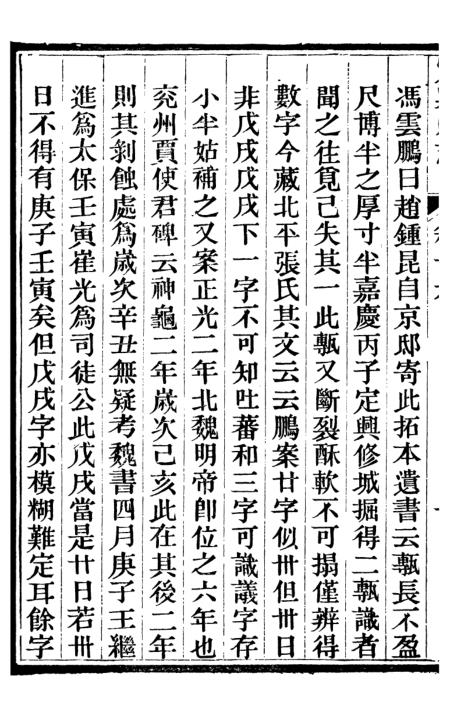 馮雲鵬曰趙鍾昆自京邸寄此拓本遺書云甎長不盈
尺博半之厚寸半嘉慶丙子定興修城掘得二甎識者
聞之往覓已失其一此甎又斷裂酥軟不可搨僅辨得
數字今藏北平張氏其文云云鵬案廿字似卅但卅日
非戊戌戊戌下一字不可知吐蕃和三字可識議字存
小半姑補之又案正光二年北魏明帝卽位之六年也
兖州賈使君碑云神龜二年歲次己亥此在其後二年
則其剝蝕處爲歲次辛丑無疑考魏書四月庚子王繼
進爲太保壬寅崔光爲司徒公此戊戌當是廿日若卅
日不得有庚子壬寅矣但戊戌字亦模糊難定耳餘字